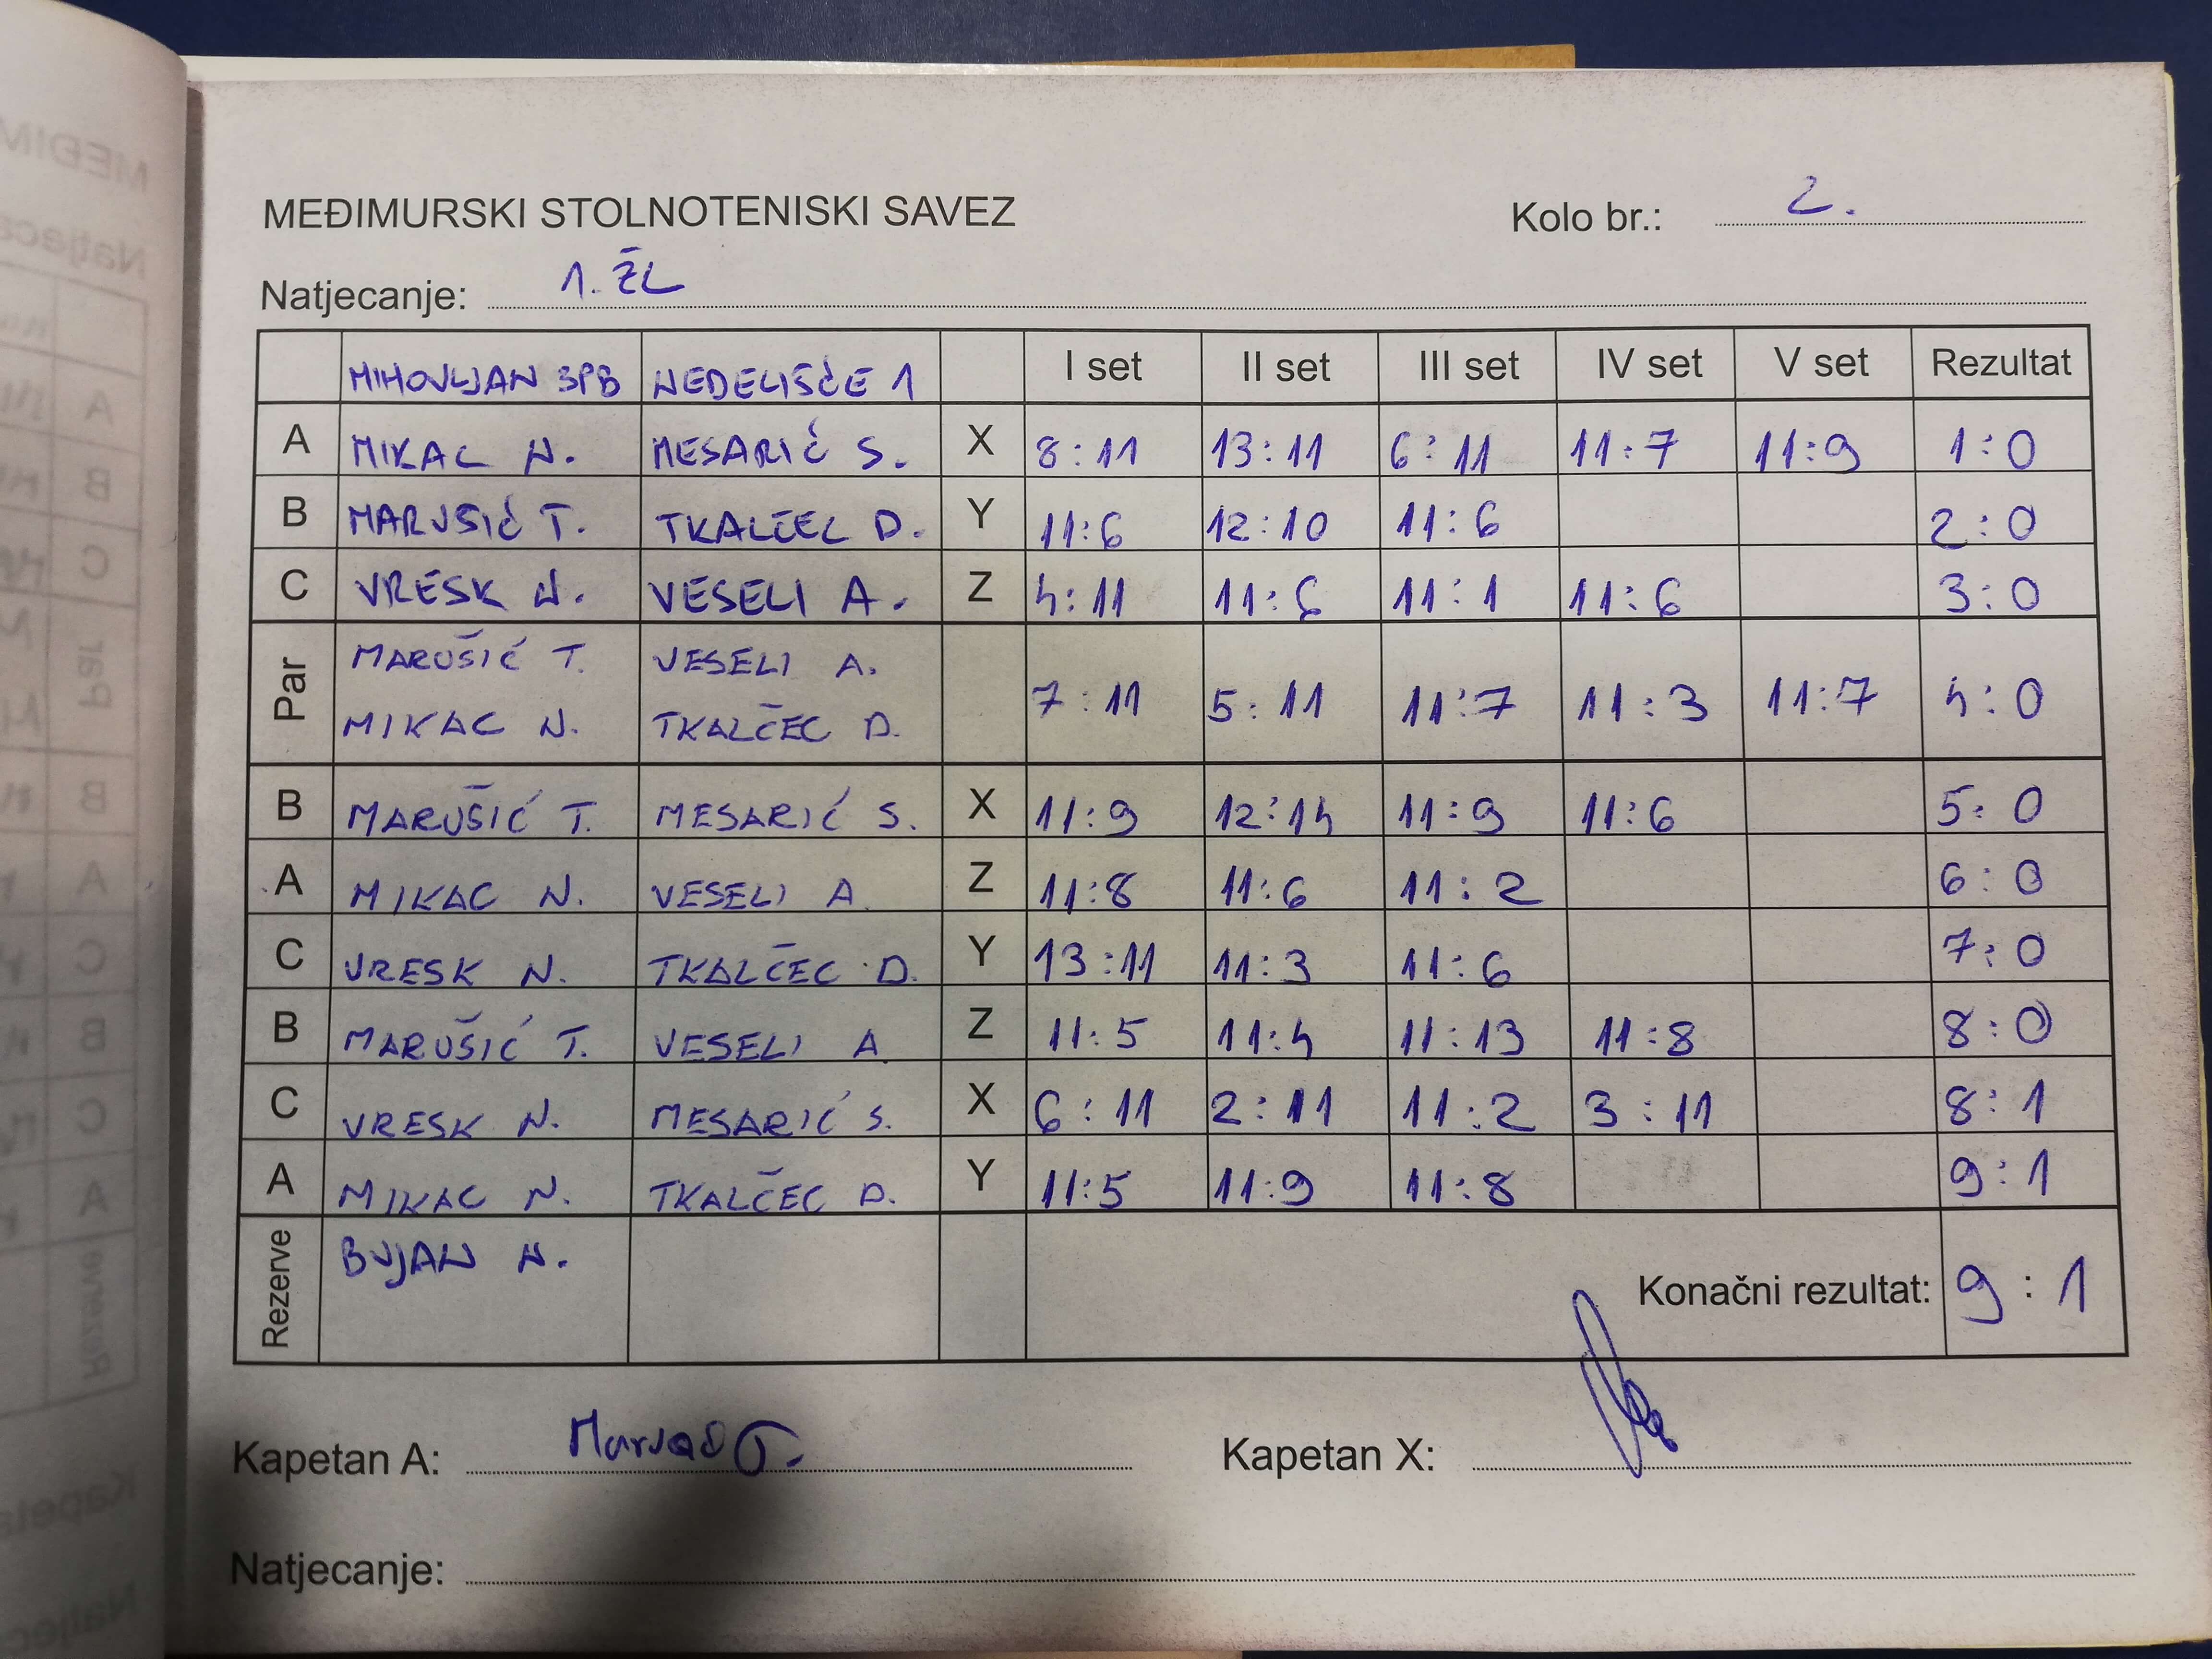 MEĐIMURSKI STOLNOTENISKI SAVEZ Kolo br.: 2.
Natjecanje: 1. ŽL
MIHOVLJAN SPB NEDELIŠĆE 1 I set II set III set IV set V set Rezultat
A MIKAC N. MESARIĆ S. X 8:11 13:11 6:11 11:7 11:9 1:0
B MARUŠIĆ T. TKALČEC D. Y 11:6 12:10 11:6 2:0
C VRESK N. VESELI A. Z 4:11 11:6 11:1 11:6 3:0
Par MARUŠIĆ T. VESELI A. 7:11 5:11 11:7 11:3 11:7 4:0
MIKAC N. TKALČEC D.
B MARUŠIĆ T. MESARIĆ S. X 11:9 12:14 11:9 11:6 5:0
A MIKAC N. VESELI A. Z 11:8 11:6 11:2 6:0
C VRESK N. TKALČEC D. Y 13:11 11:3 11:6 7:0
B MARUŠIĆ T. VESELI A Z 11:5 11:4 11:13 11:8 8:0
C VRESK N. MESARIĆ S. X 6:11 2:11 11:2 3:11 8:1
A MIKAC N. TKALČEC D. Y 11:5 11:9 11:8 9:1
Rezerve BUJAN N. Konačni rezultat: 9:1
Kapetan A: Kapetan X:
Natjecanje: